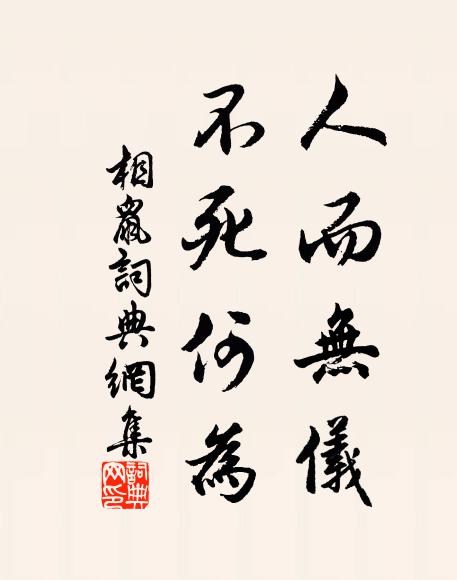 人而無儀
不死何為
相鼠詞典網集
詞典网印